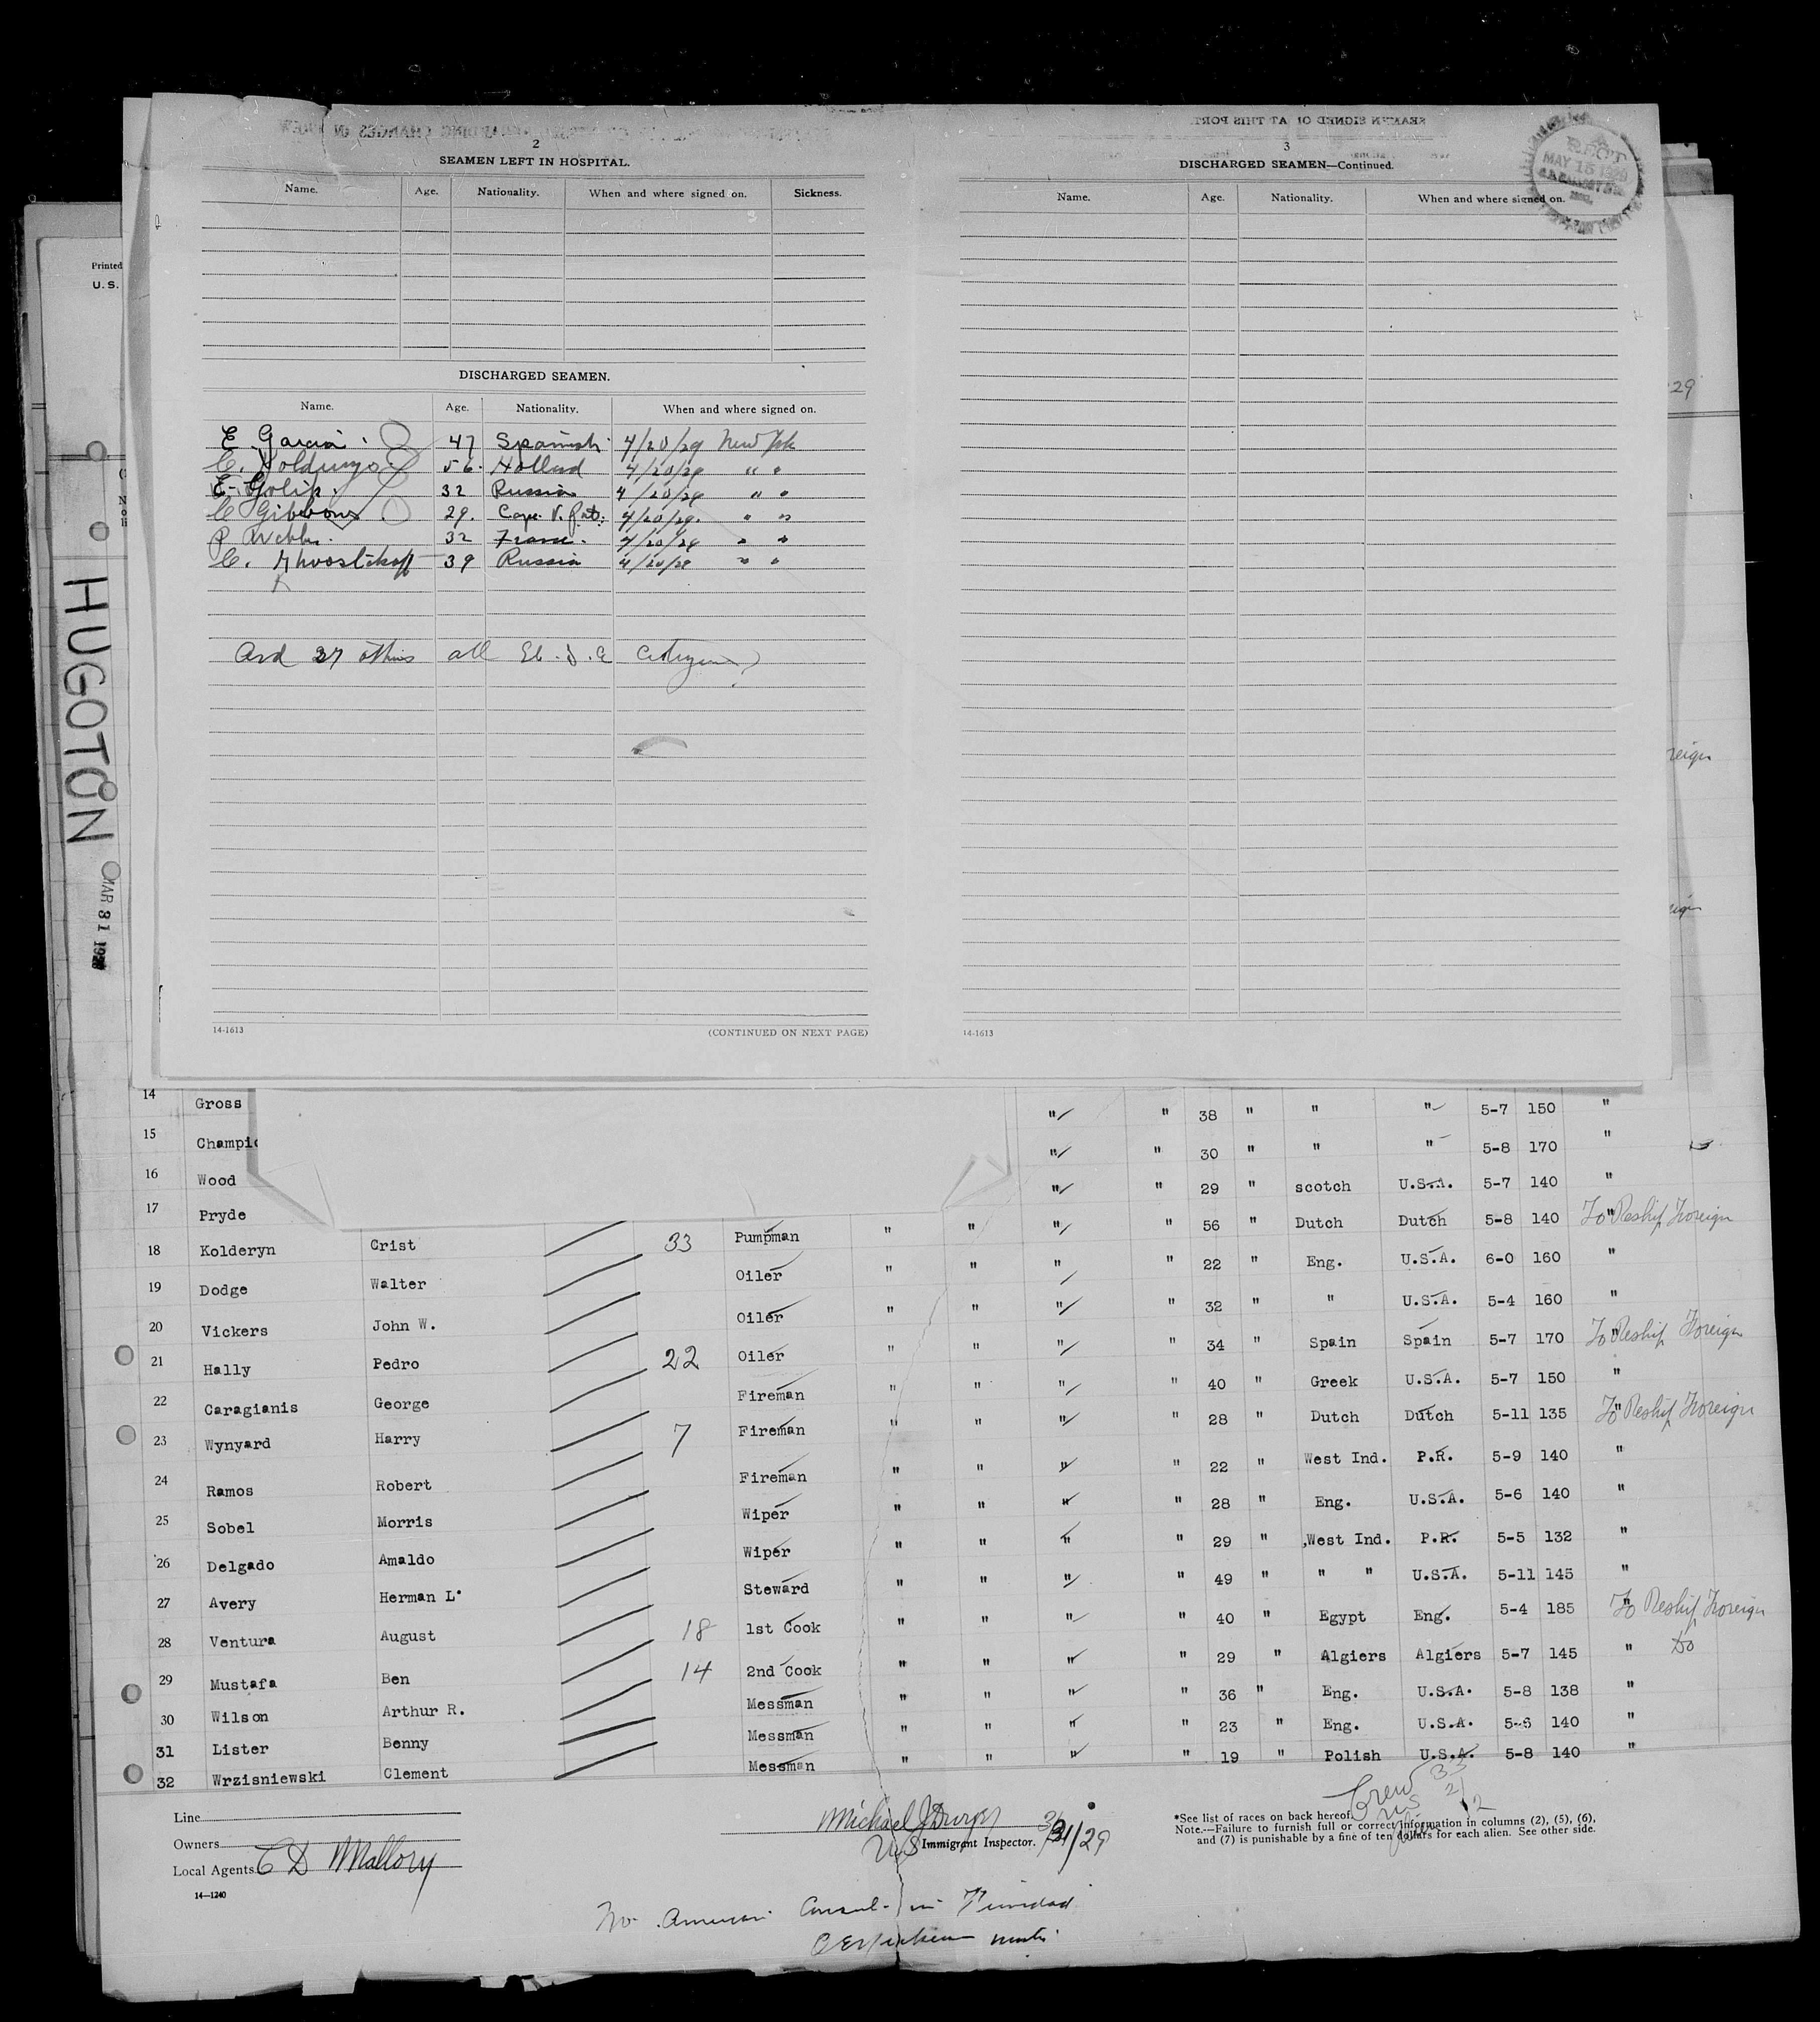 2
SEAMEN LEFT IN HOSPITAL.
Name. Age. Nationality. When and where signed on. Sickness.
DISCHARGED SEAMEN.
Name. Age. Nationality. When and where signed on.
E Garcia 47 Spanish 4/20/29 New York
C. 56 Holland 4/20/29 " "
E. Golik. 32 Russia 4/20/29 " "
C Gibbons 29. Cape V. 4/20/29. " "
P 32 France. 4/20/29 " "
C. 39 Russia 4/20/29 " "
K
And 27 others all U.S.A Citizens
14-1613 (CONTINUED ON NEXT PAGE)
SEAMEN SIGNED ON AT THIS PORT
3
DISCHARGED SEAMEN—Continued.
Name. Age. Nationality. When and where signed on.
REC'D
MAY 15 1929
14-1613
Printed
U.S.
HUGOTON
MAR 31 1929
29
reign
eign
14 Gross " " 38 " " " 5-7 150 "
15 Champi " " 30 " " " 5-8 170 "
16 Wood " " 29 " scotch U.S.A. 5-7 140 "
17 Pryde " " " " 56 " Dutch Dutch 5-8 140 " To Reship Foreign
18 Kolderyn Crist 33 Pumpman " " " " 22 " Eng. U.S.A. 6-0 160 "
19 Dodge Walter Oiler " " " " 32 " " U.S.A. 5-4 160 "
20 Vickers John W. Oiler " " " " 34 " Spain Spain 5-7 170 " To Reship Foreign
21 Hally Pedro 22 Oiler " " " " 40 " Greek U.S.A. 5-7 150 "
22 Caragianis George Fireman " " " " 28 " Dutch Dutch 5-11 135 " To Reship Foreign
23 Wynyard Harry 7 Fireman " " " " 22 " West Ind. P.R. 5-9 140 "
24 Ramos Robert Fireman " " " " 28 " Eng. U.S.A. 5-6 140 "
25 Sobel Morris Wiper " " " " 29 " West Ind. P.R. 5-5 132 "
26 Delgado Amaldo Wiper " " " " 49 " " " U.S.A. 5-11 145 "
27 Avery Herman L. Steward " " " " 40 " Egypt Eng. 5-4 185 " To Reship Foreign
28 Ventura August 18 1st Cook " " " " 29 " Algiers Algiers 5-7 145 " Do
29 Mustafa Ben 14 2nd Cook " " " " 36 " Eng. U.S.A. 5-8 138 "
30 Wilson Arthur R. Messman " " " " 23 " Eng. U.S.A. 5-6 140 "
31 Lister Benny Messman " " " " 19 " Polish U.S.A. 5-8 140 "
32 Wrzisniewski Clement Messman
Line
Owners
Local Agents C D Mallory
14—1240
Michael J
US Immigrant Inspector. 3/31/29
Crew 33
US 21
12
*See list of races on back hereof.
Note.—Failure to furnish full or correct information in columns (2), (5), (6),
and (7) is punishable by a fine of ten dollars for each alien. See other side.
No American Consul in Trinidad